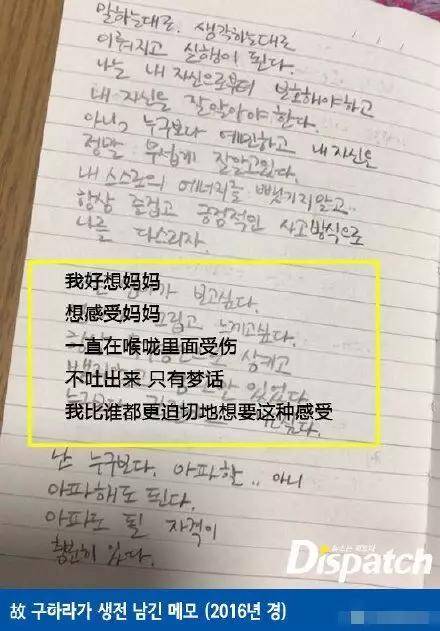 말하는대로. 생각하는대로
이뤄지고 실행이 된다.
나는 내 자신으로부터 보호해야하고
내 자신을 잘 알아야 한다.
아니? 누구보다 예민하고 내 자신은
정말 무섭게 잘알고있다.
내 스스로의 에너지를 뺏기지말고..
항상 즐겁고 긍정적인 사고방식으로
나를 다스리자.
가 보고싶다.
我好想妈妈
그립고 느끼고싶다..
想感受妈妈
삼키고
一直在喉咙里面受伤
안 있었다
不吐出来 只有梦话
我比谁都更迫切地想要这种感受
싶다.
난 누구보다. 아파할.. 아니
아파해도 된다.
아파도 될 자격이
충분히 있다.
뉴스는 팩트다
Dispatch
故 구하라가 생전 남긴 메모 (2016년 경)